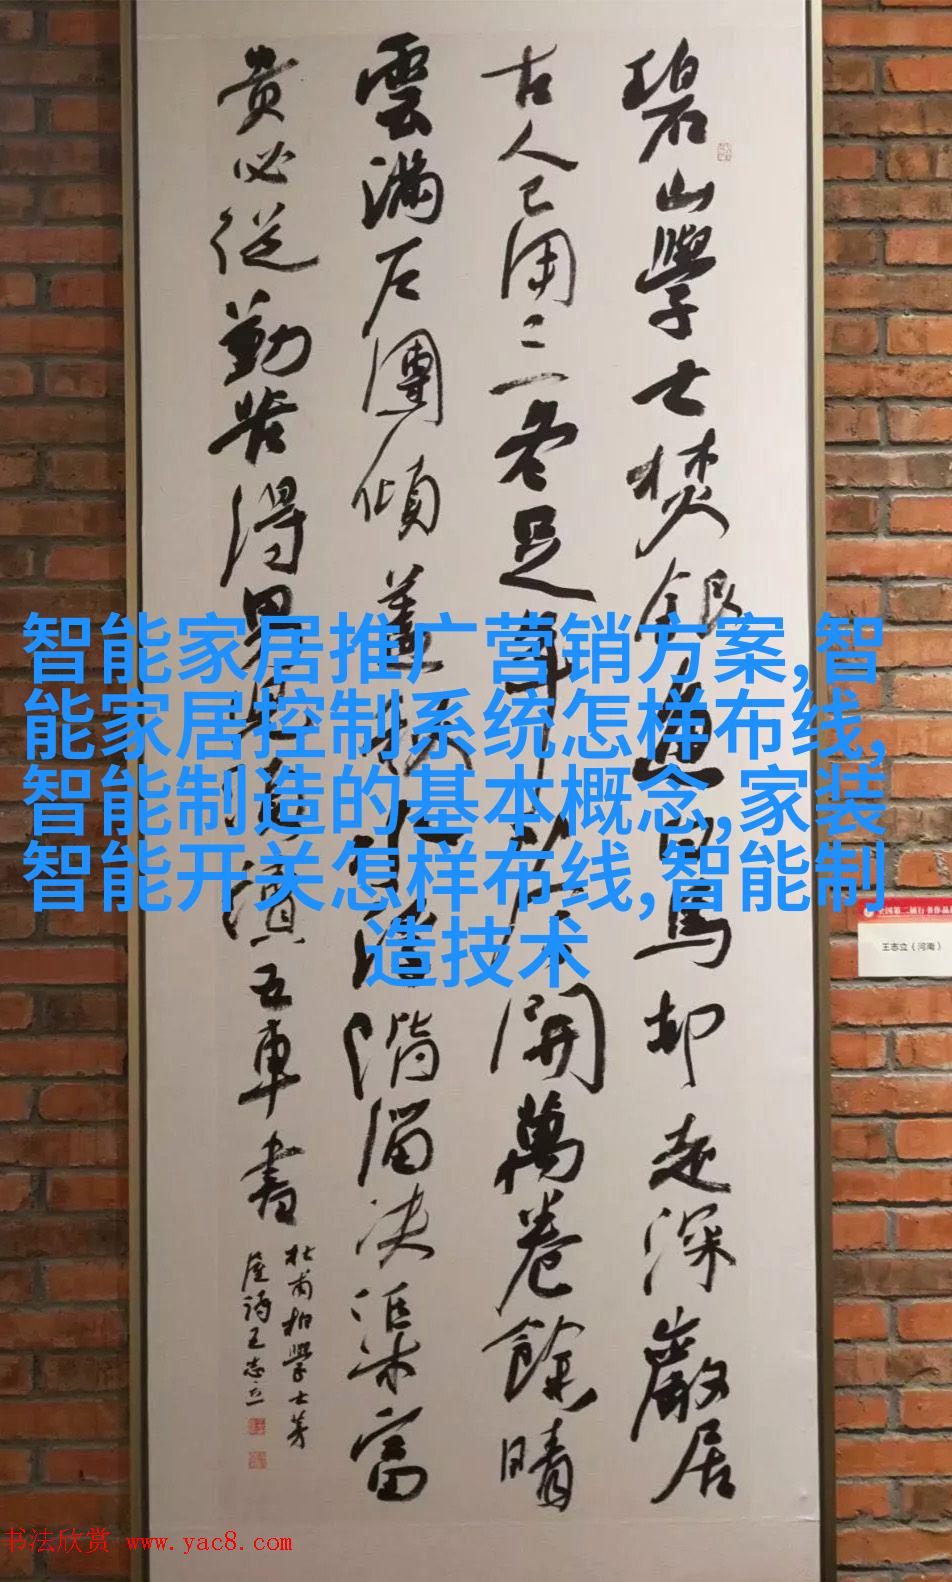 碧山學士焚銀魚白馬却走深巖居
古人已用三冬足年少今開萬卷餘晴
雲滿户團傾蓋秋水浮階溜决渠富
貴必從勤苦得男兒須讀五車書
杜甫柏學士茅
屋詩王志立
智能家居推广营销方案,智
能家居控制系统怎样布线,
智能制造的基本概念,家装
智能开关怎样布线,智能制
造技术
全国第二届行书作品
王志立（河南）
书法欣赏 www.yac8.com